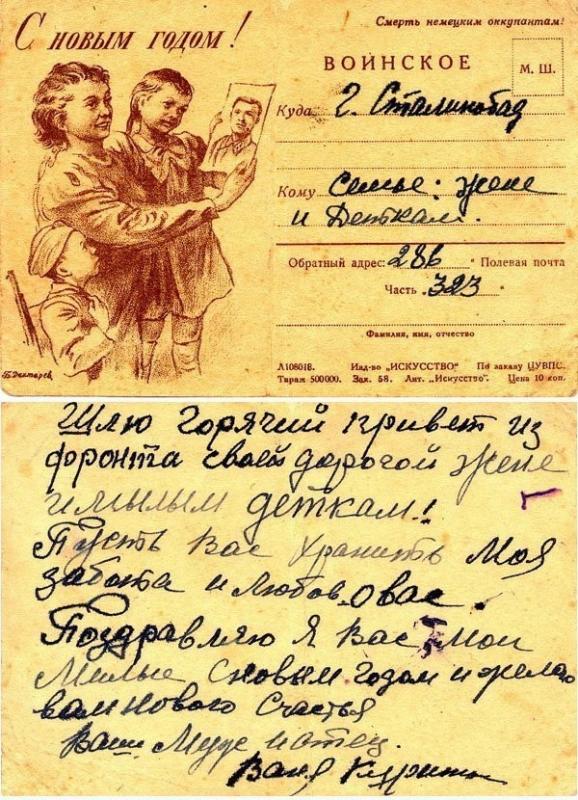 С новым годом!
Смерть немецким оккупантам!
ВОИНСКОЕ
М. Ш.
Куда г. Сталинобад
Кому Семье: жене
и Деткам.
Обратный адрес: 286 Полевая почта
Часть 323
Фамилия, имя, отчество
Б. Дехтерев
А108018. Изд-во "ИСКУССТВО" По заказу ЦУВПС.
Тираж 500000. Зак. 58. Лит. "Искусство". Цена 10 коп.
Шлю горячий привет из
фронта своей дорогой жене
и милым деткам!
Пусть Вас хранить Моя
забота и любов о вас.
Поздравляю я Вас Мои
Милые с новым годом и желаю
вам нового счастья
Ваш Муж и отец.
Ваня